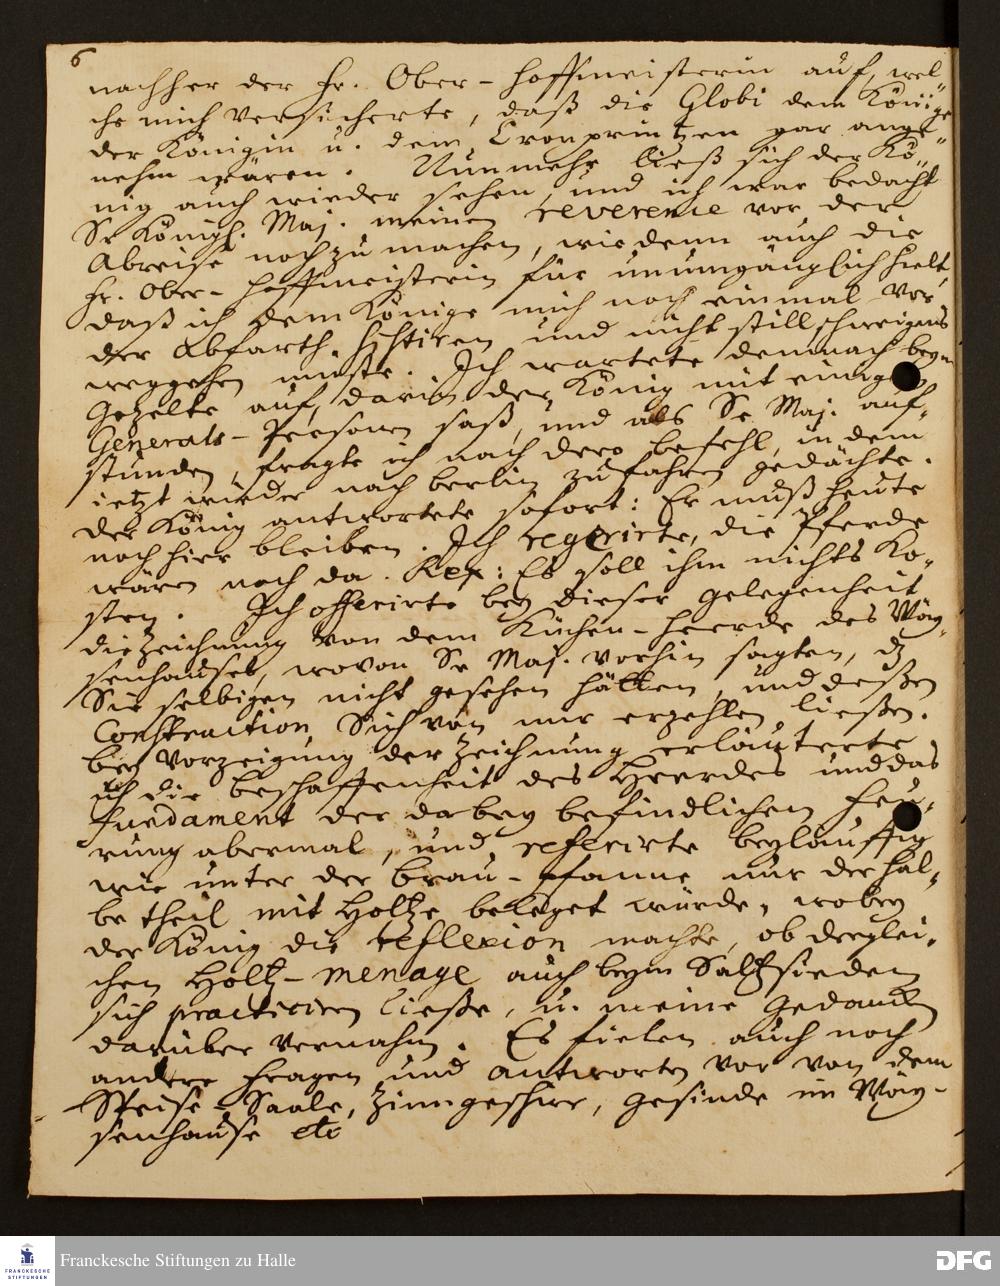 6
nachher der Fr. Ober-Hoffmeisterin auf, wel-
che mich versicherte, daß die Globi dem Könige
der Königin u. dem Cronprintzen gar ange-
nehm wären. Nunmehr ließ sich der Kö-
nig auch wieder sehen, und ich war bedacht
Sr Königl. Maj. meinen reverence vor der
Abreise noch zu machen, wie denn auch die
Fr. Ober-Hoffmeisterin für unumgänglich hielt,
daß ich dem Könige mich noch einmal vor
der Abfarth sistiren und nicht stillschweigends
weggehen müste. Ich wartete demnach beym
Gezelte auf, darin der König mit einigen
Generals-Personen saß, und als Se Maj. auf-
stunden, fragte ich nach dero befehl, in dem
ietzt wieder nach berlin zu fahren gedächte.
Der König antwortete sofort: Er muß heute
noch hier bleiben. Ich regerirte, die Pferde
wären noch da. Rex: Es soll ihm nichts Ko-
sten. Ich offerirte bey dieser gelegenheit
die Zeichnung von dem Küchen-Heerde des Wäy-
senhauses, wovon Se Maj. vorhin sagten, dß
Sie selbigen nicht gesehen hätten, und deßen
Construction Sich von mir erzehlen ließen.
Bey Vorzeigung der Zeichnung erläuterte
ich die beschaffenheit des Heerdes und das
Fundament der dabey befindlichen Feu-
rung abermal, und referirte beyläuffig
wie unter der Brau-Pfanne nur der hal-
be theil mit Holtze beleget würde, wobey
der König die reflexion machte, ob derglei-
chen Holtz-menage auch beym Saltzsieden
sich practiciren ließe, u. meine Gedancken
darüber vernahm. Es fielen auch noch
andere Fragen und antworten vor von dem
Speise-Saale, Zinngeschirr, Gesinde im Wäy-
senhause etc
Franckesche Stiftungen zu Halle
FRANCKESCHE STIFTUNGEN
DFG